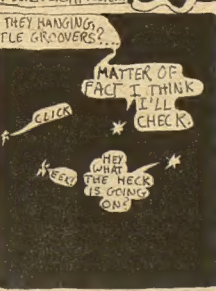 THEY HANGING,
TLE GROOVERS?...
MATTER OF
FACT I THINK
I'LL
CHECK.
CLICK
EEK!
HEY
WHAT
THE HECK
IS GOING
ON?